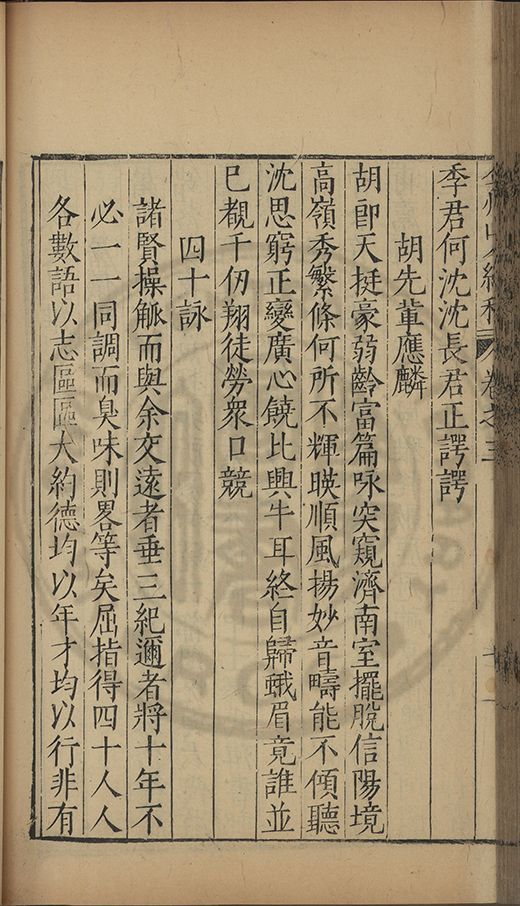 卷之三
季君何沈沈長君正諤諤
胡先輩應麟
胡郎天挺豪弱齡富篇咏突窺濟南室擺脫信陽境
高嶺秀繁條何所不輝暎順風揚妙音疇能不傾聽
沈思窮正變廣心饒比興牛耳終自歸蛾眉竟誰並
已覩千仞翔徒勞衆口競
四十詠
諸賢操觚而與余交遠者垂三紀邇者將十年不
必一一同調而臭味則畧等矣屈指得四十人人
各數語以志區區大約德均以年才均以行非有